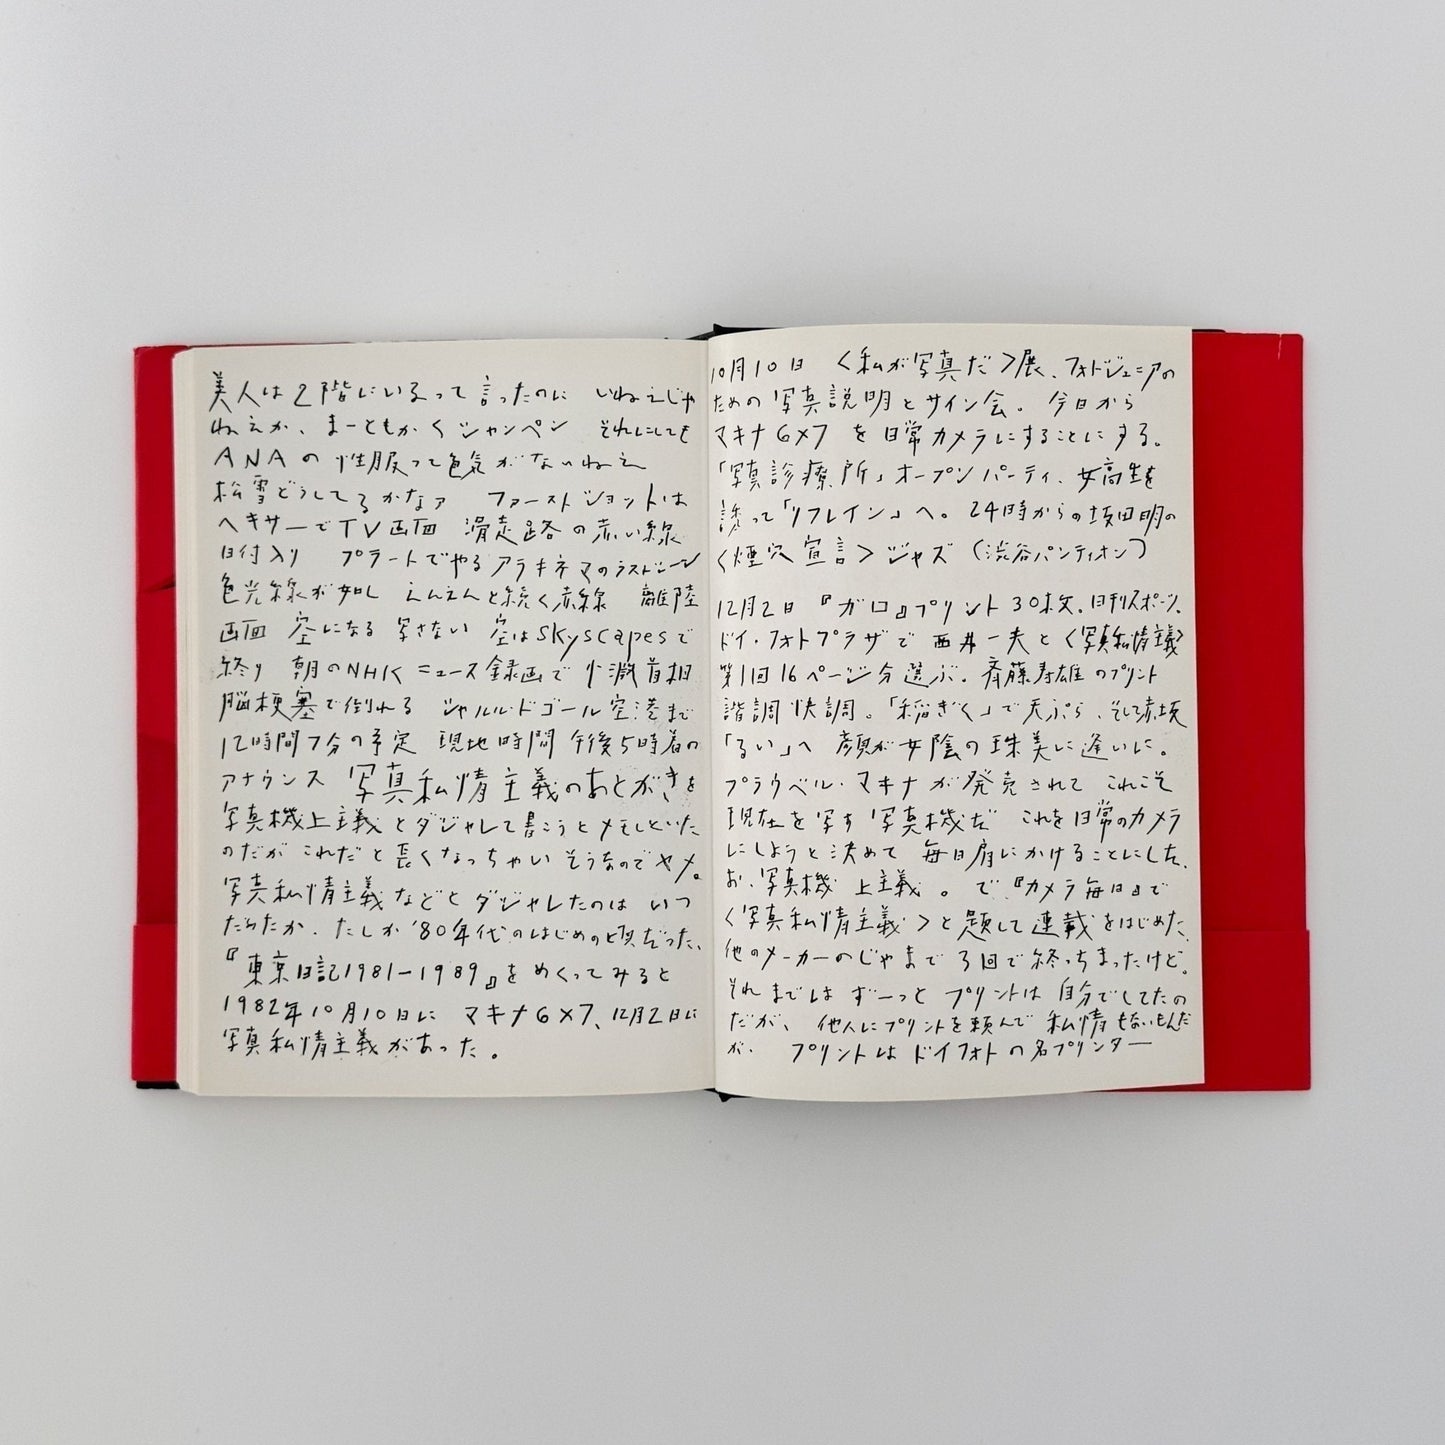 美人は2階にいるって言ったのに いねえじゃ
ねえか、まーともかくシャンペン それにしても
ANAの性服って色気がないねえ
松雪どうしてるかなァ ファーストショットは
ヘキサーでTV画面 滑走路の赤い線
日付入り プラートでやるアラキネマのラストシーン
色光線が如し えんえんと続く赤線 離陸
画面 空になる 写さない 空はskyscapesで
終り 朝のNHKニュース録画で小渕首相
脳梗塞で倒れる シャルル・ドゴール空港まで
12時間7分の予定 現地時間 午後5時着の
アナウンス 写真私情主義のあとがきを
写真機上主義とダジャレて書こうとメモしといた
のだが これだと長くなっちゃいそうなのでヤメ。
写真私情主義などとダジャレたのは いつ
だったか、たしか'80年代のはじめの頃だった、
『東京日記1981-1989』をめくってみると
1982年10月10日に マキナ6×7、12月2日に
写真私情主義があった。
10月10日 〈私が写真だ〉展、フォトジェニアの
ための写真説明とサイン会。今日から
マキナ6×7 を日常カメラにすることにする。
「写真診療所」オープンパーティ、女高生を
誘って「リフレイン」へ。24時からの坂田明の
〈煙穴宣言〉ジャズ（渋谷パンテオン）
12月2日 『ガロ』プリント30枚、日刊スポーツ、
ドイ・フォトプラザで 西井一夫と〈写真私情主義〉
第1回16ページ分選ぶ。斉藤寿雄のプリント
諧調快調。「稲ぎく」で天ぷら、そして赤坂
「るい」へ 顔が女陰の珠美に逢いに。
プラウベル・マキナが発売されて これこそ
現在を写す写真機だ これを日常のカメラ
にしようと決めて 毎日肩にかけることにした、
お、写真機上主義。で『カメラ毎日』で
〈写真私情主義〉と題して連載をはじめた、
他のメーカーのじゃまで3回で終っちまったけど。
それまではずーっと プリントは自分でしてたの
だが、他人にプリントを頼んで 私情もないもんだ
が、 プリントはドイフォトの名プリンター